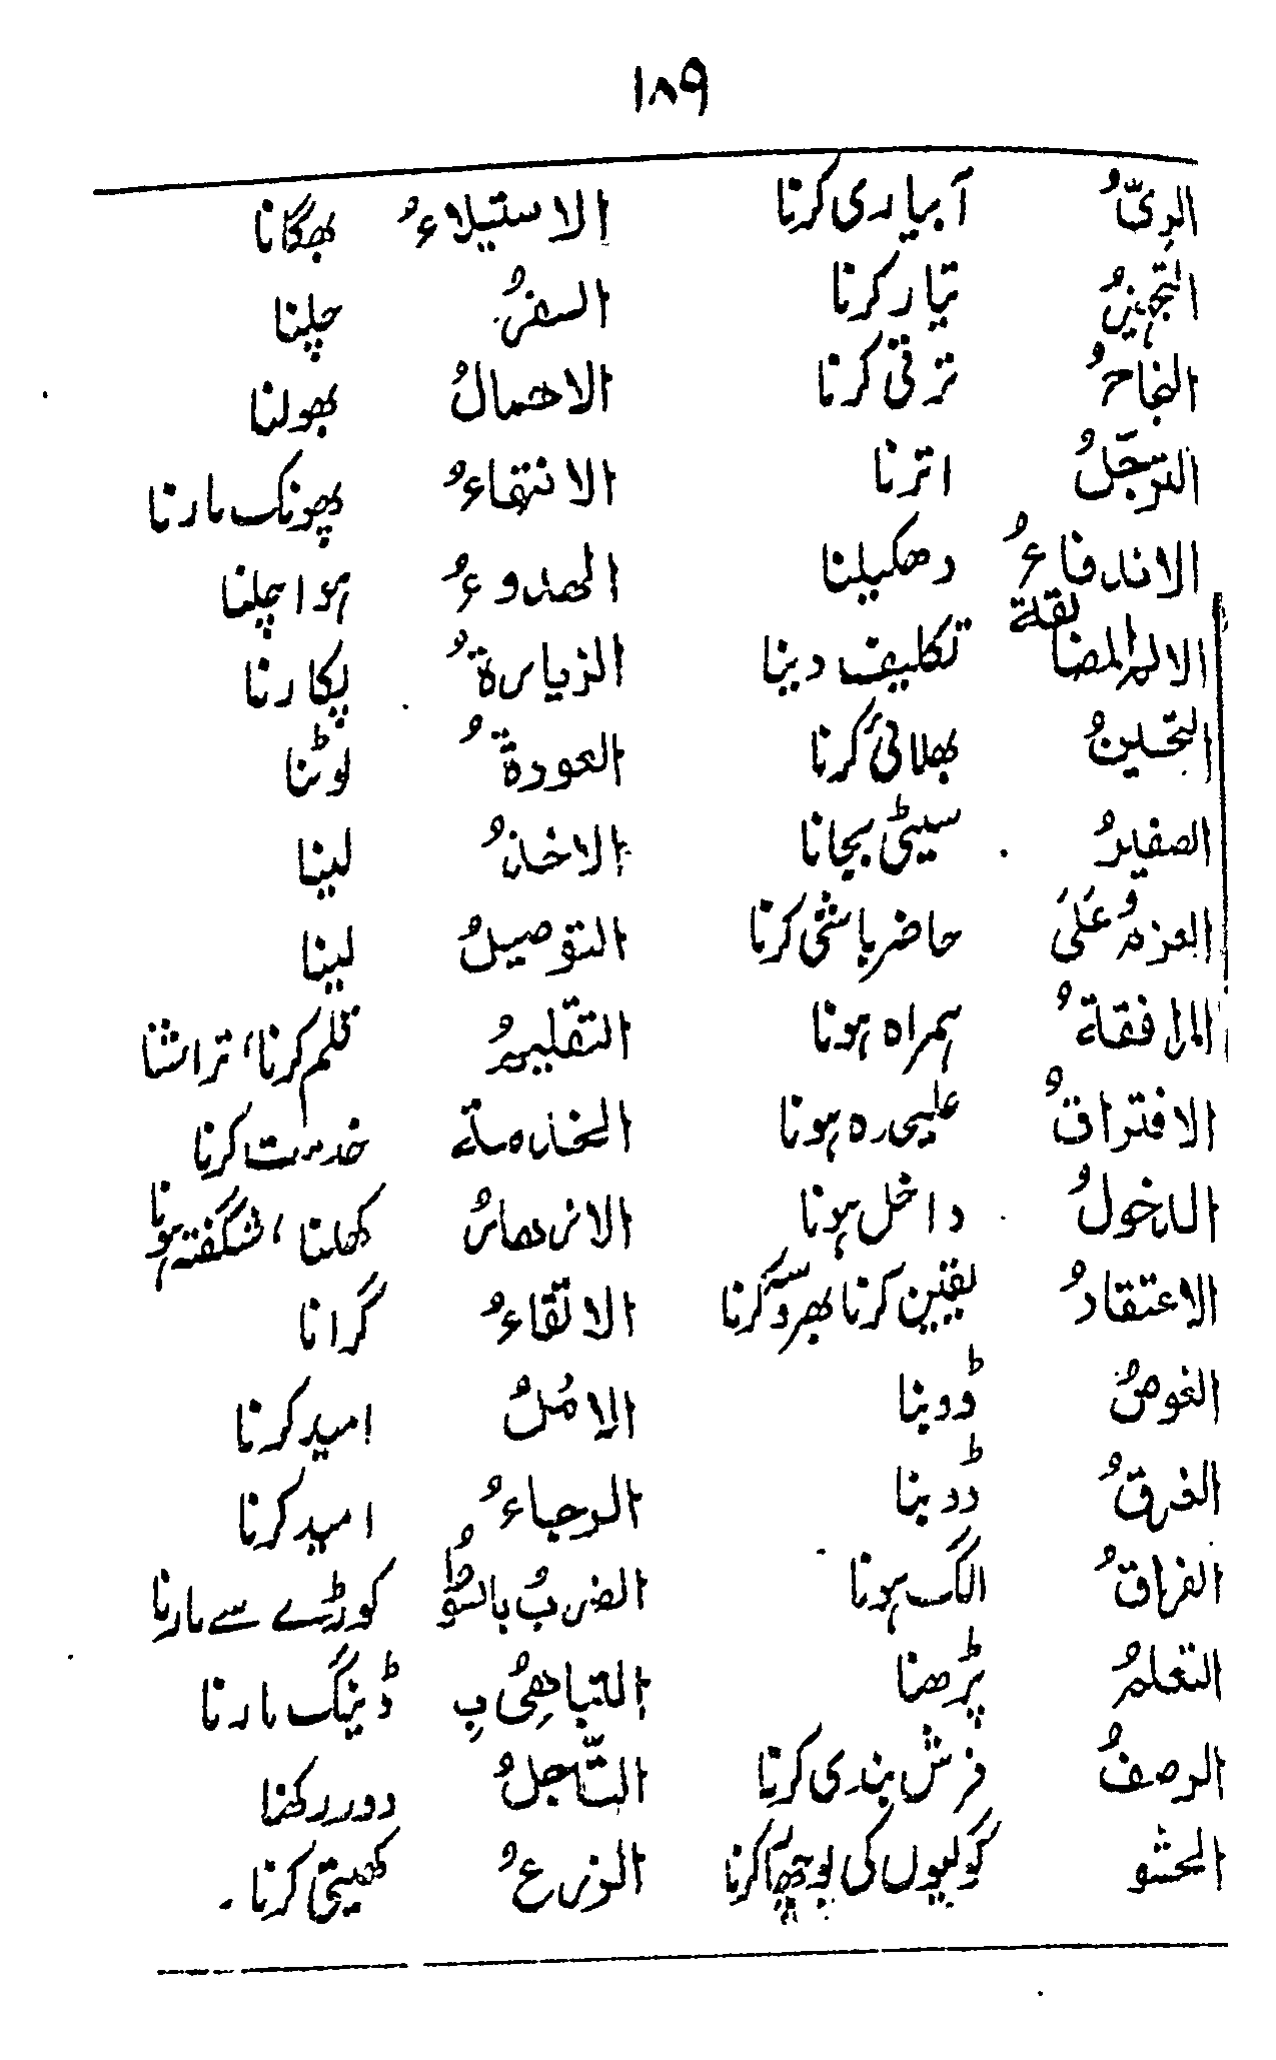 ۱۸۹
الرِیُّ آبیاری کرنا الاستیلاءُ بھگانا
التجہیزُ تیار کرنا السفرُ چلنا
النجاحُ ترقی کرنا الاھمالُ بھولنا
الترجّلُ اترنا الانتھاءُ پھونک مارنا
الاندفاعُ دھکیلنا الھدوءُ ہوا چلنا
الالم المضایقة تکلیف دینا الزیارۃُ پکارنا
التحسینُ بھلائی کرنا العودۃُ لوٹنا
الصفیرُ سیٹی بجانا الاخذُ لینا
العزمُ عَلَی حاضر باشی کرنا التوصیلُ لینا
المرافقةُ ہمراہ ہونا التقلیمُ قلم کرنا، تراشنا
الافتراقُ علیحدہ ہونا الخدمة خدمت کرنا
الدخولُ داخل ہونا الازدھارُ کھلنا، شگفتہ ہونا
الاعتقادُ یقین کرنا بھروسہ کرنا الالقاءُ گرانا
الغوصُ ڈوبنا الامُلُ امید کرنا
الغرقُ ڈوبنا الرجاءُ امید کرنا
الفراقُ الگ ہونا الضربُ بالسَّوطُ کوڑے سے مارنا
التعلمُ پڑھنا التباھِیُ بِ ڈینگ مارنا
الرصفُ فرش بندی کرنا التّاجلُ دور رکھنا
الحشو گولیوں کی بوچھاڑ کرنا الزرعُ کھیتی کرنا۔